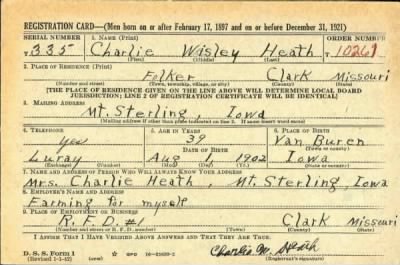 REGISTRATION CARD—(Men born on or after February 17, 1897 and on or before December 31, 1921)
SERIAL NUMBER 1. NAME (Print) ORDER NUMBER
335 Charlie Wisley Heath 10261
(First) (Middle) (Last)
2. PLACE OF RESIDENCE (Print)
Folker Clark Missouri
(Number and street) (Town, township, village, or city) (County) (State)
[THE PLACE OF RESIDENCE GIVEN ON THE LINE ABOVE WILL DETERMINE LOCAL BOARD
JURISDICTION; LINE 2 OF REGISTRATION CERTIFICATE WILL BE IDENTICAL]
3. MAILING ADDRESS
Mt. Sterling, Iowa
[Mailing address if other than place indicated on line 2. If same insert word same]
4. TELEPHONE 5. AGE IN YEARS 6. PLACE OF BIRTH
yes 39 Van Buren
DATE OF BIRTH (Town or county)
Luray Aug 1 1902 Iowa
(Exchange) (Number) (Mo.) (Day) (Yr.) (State or country)
7. NAME AND ADDRESS OF PERSON WHO WILL ALWAYS KNOW YOUR ADDRESS
Mrs. Charlie Heath, Mt. Sterling, Iowa
8. EMPLOYER'S NAME AND ADDRESS
Farming for myself
9. PLACE OF EMPLOYMENT OR BUSINESS
R.F.D. #1 Clark Missouri
(Number and street or R. F. D. number) (Town) (County) (State)
I AFFIRM THAT I HAVE VERIFIED ABOVE ANSWERS AND THAT THEY ARE TRUE.
D. S. S. Form 1 GPO
(Revised 1-1-42) (over) Charlie W. Heath
(Registrant's signature)